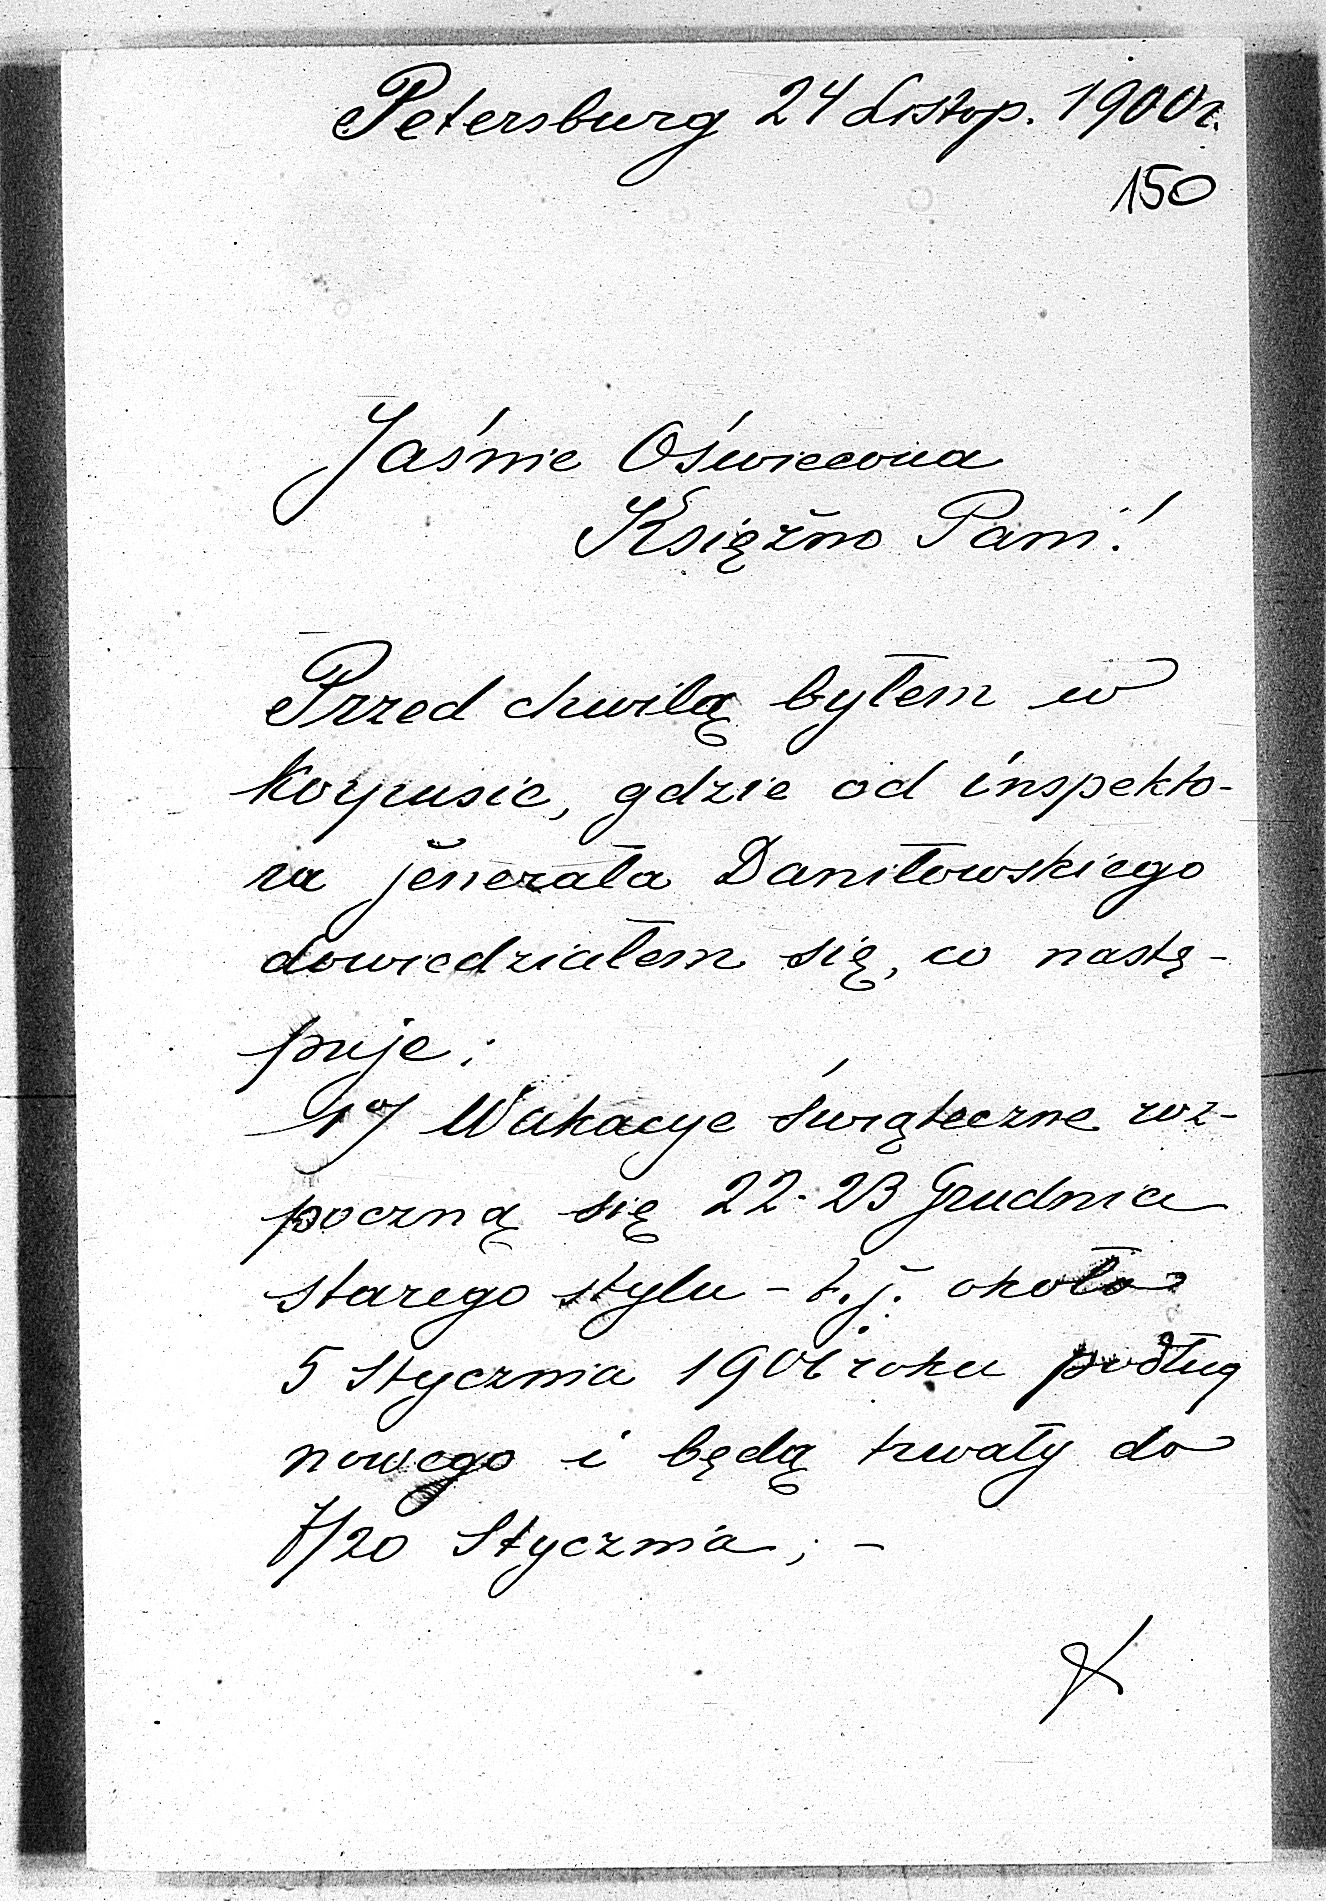 Petersburg 24 Listop. 1900 r.
150
Jaśnie Oświecona
Księżno Pani!
Przed chwilą byłem w
Korpusie, gdzie od inspekto-
ra jenerała Daniłowskiego
dowiedziałem się, co nastę-
puje:
1º/ Wakacye świąteczne roz-
poczną się 22-23 Grudnia
starego stylu – t.j. około
5 Stycznia roku podług
nowego i będą trwały do
7/20 Stycznia; –